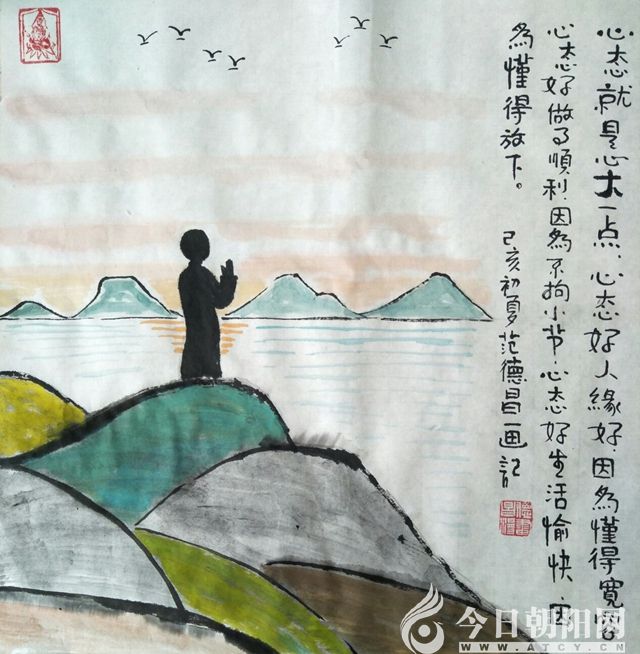 心态就是心大一点.心态好人緣好.因為懂得寬容
心态好做事順利.因為不拘小节.心态好生活愉快 因
為懂得放下。
己亥初夏范德昌画記
今日朝阳网
WWW.ATCY.CN